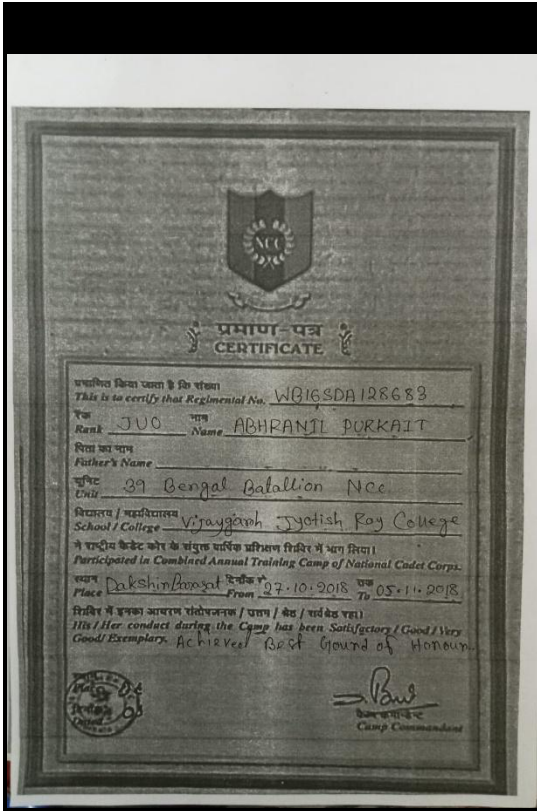 NCC
प्रमाण-पत्र
CERTIFICATE
प्रमाणित किया जाता है कि संख्या
This is to certify that Regimental No. WB16SDA128683
रैंक नाम
Rank JUO Name ABHRANIL PURKAIT
पिता का नाम
Father's Name
यूनिट
Unit 39 Bengal Batallion NCC
विद्यालय / महाविद्यालय
School / College Vijaygarh Jyotish Ray College
ने राष्ट्रीय कैडेट कोर के संयुक्त वार्षिक प्रशिक्षण शिविर में भाग लिया।
Participated in Combined Annual Training Camp of National Cadet Corps.
स्थान दिनाँक से तक
Place Dakshin Barasat From 27.10.2018 To 05.11.2018
शिविर में इनका आचरण संतोषजनक / उत्तम / श्रेष्ठ / सर्वश्रेष्ठ रहा।
His / Her conduct during the Camp has been Satisfactory / Good / Very
Good / Exemplary. Achieved Best Gound of Honour.
दिनाँक
Dated
Camp Commandant